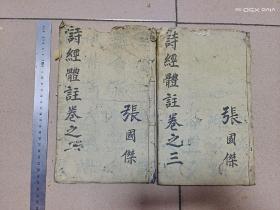 詩經體註卷之
張國傑
詩經體註卷之三
張國傑